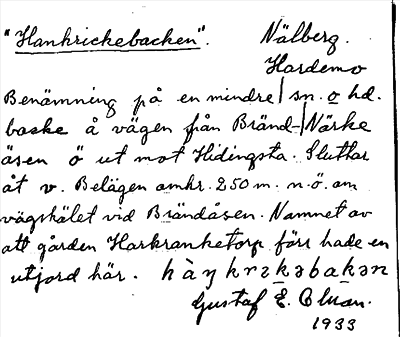 "Hankrickebacken". Nälberg.
Hardemo
Benämning på en mindre sn. o hd.
backe å vägen från Bränd- Närke
åsen ö ut mot Hidingsta. Sluttar
åt v. Belägen omkr. 250 m. n.ö. om
vägskälet vid Brändåsen. Namnet av
att gården Harkranketorp förr hade en
utjord här. hàŋkrəkəbakən
Gustaf E.
1933